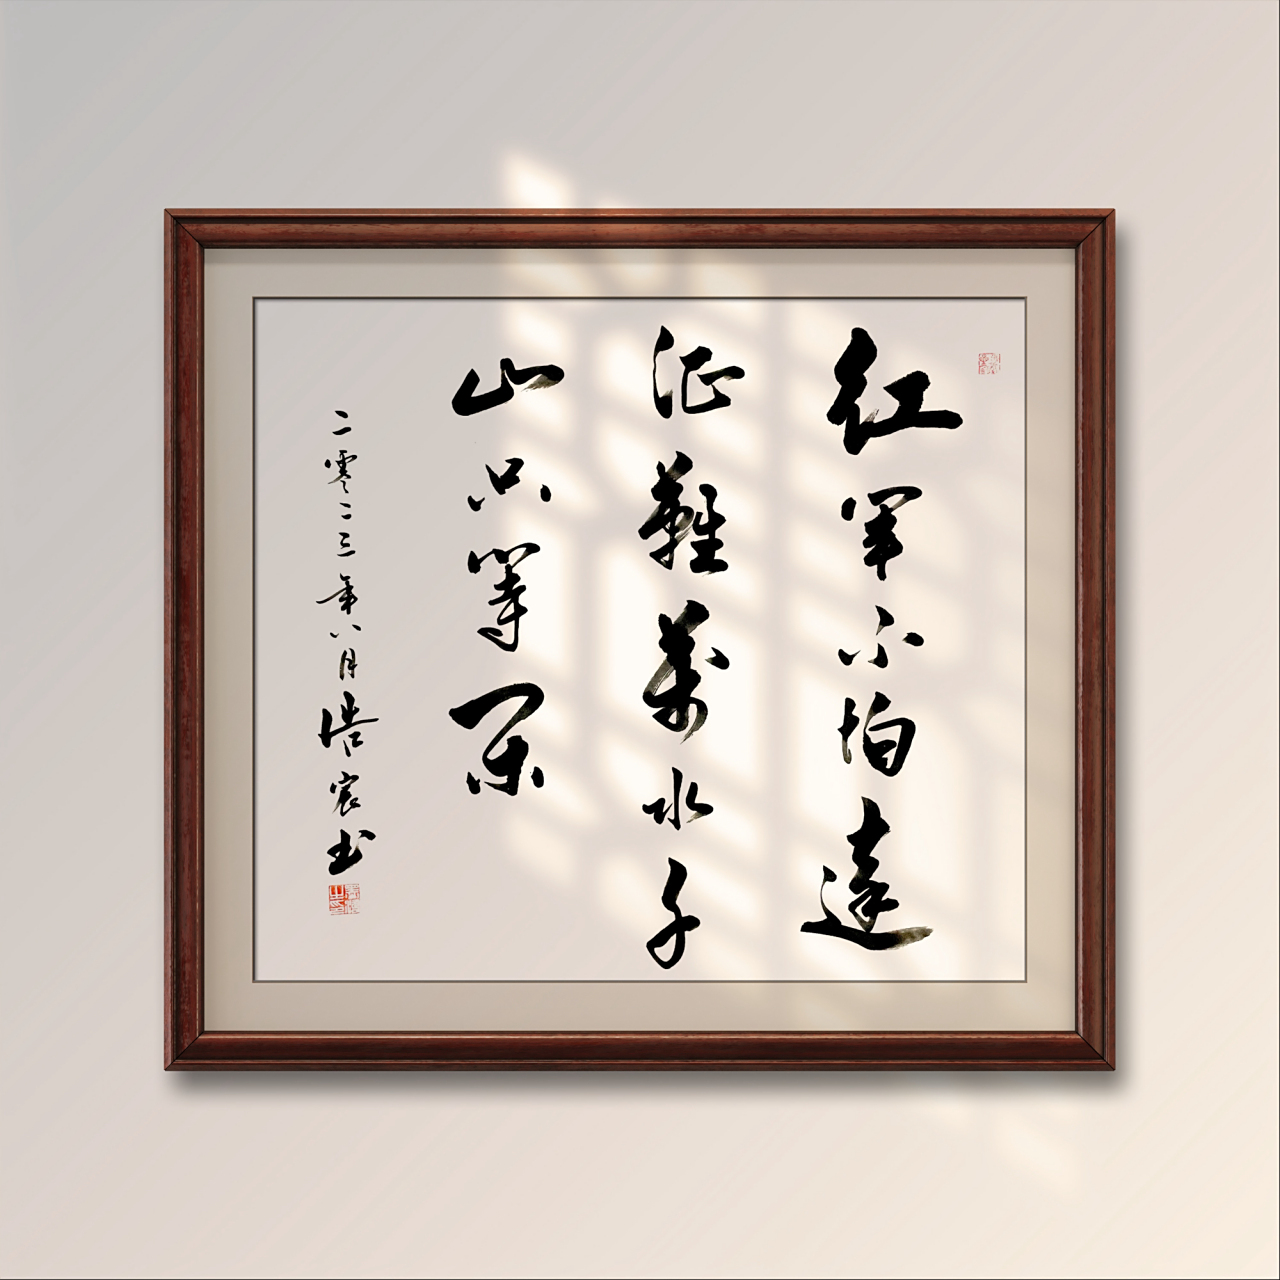 红軍不怕遠
征難萬水千
山只等闲
二零二三年八月浩宸书